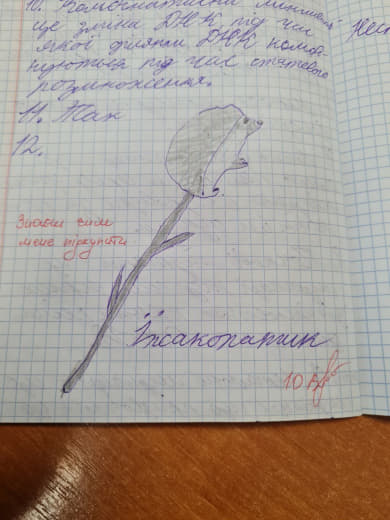 10. Комбінативна мінливість
це зміна ДНК під час
якої ділянки ДНК комбі-
нуються під час статевого
розмноження.
11. Так
12.
Знаєш чим
мене підкупити
Їжакопатик
10